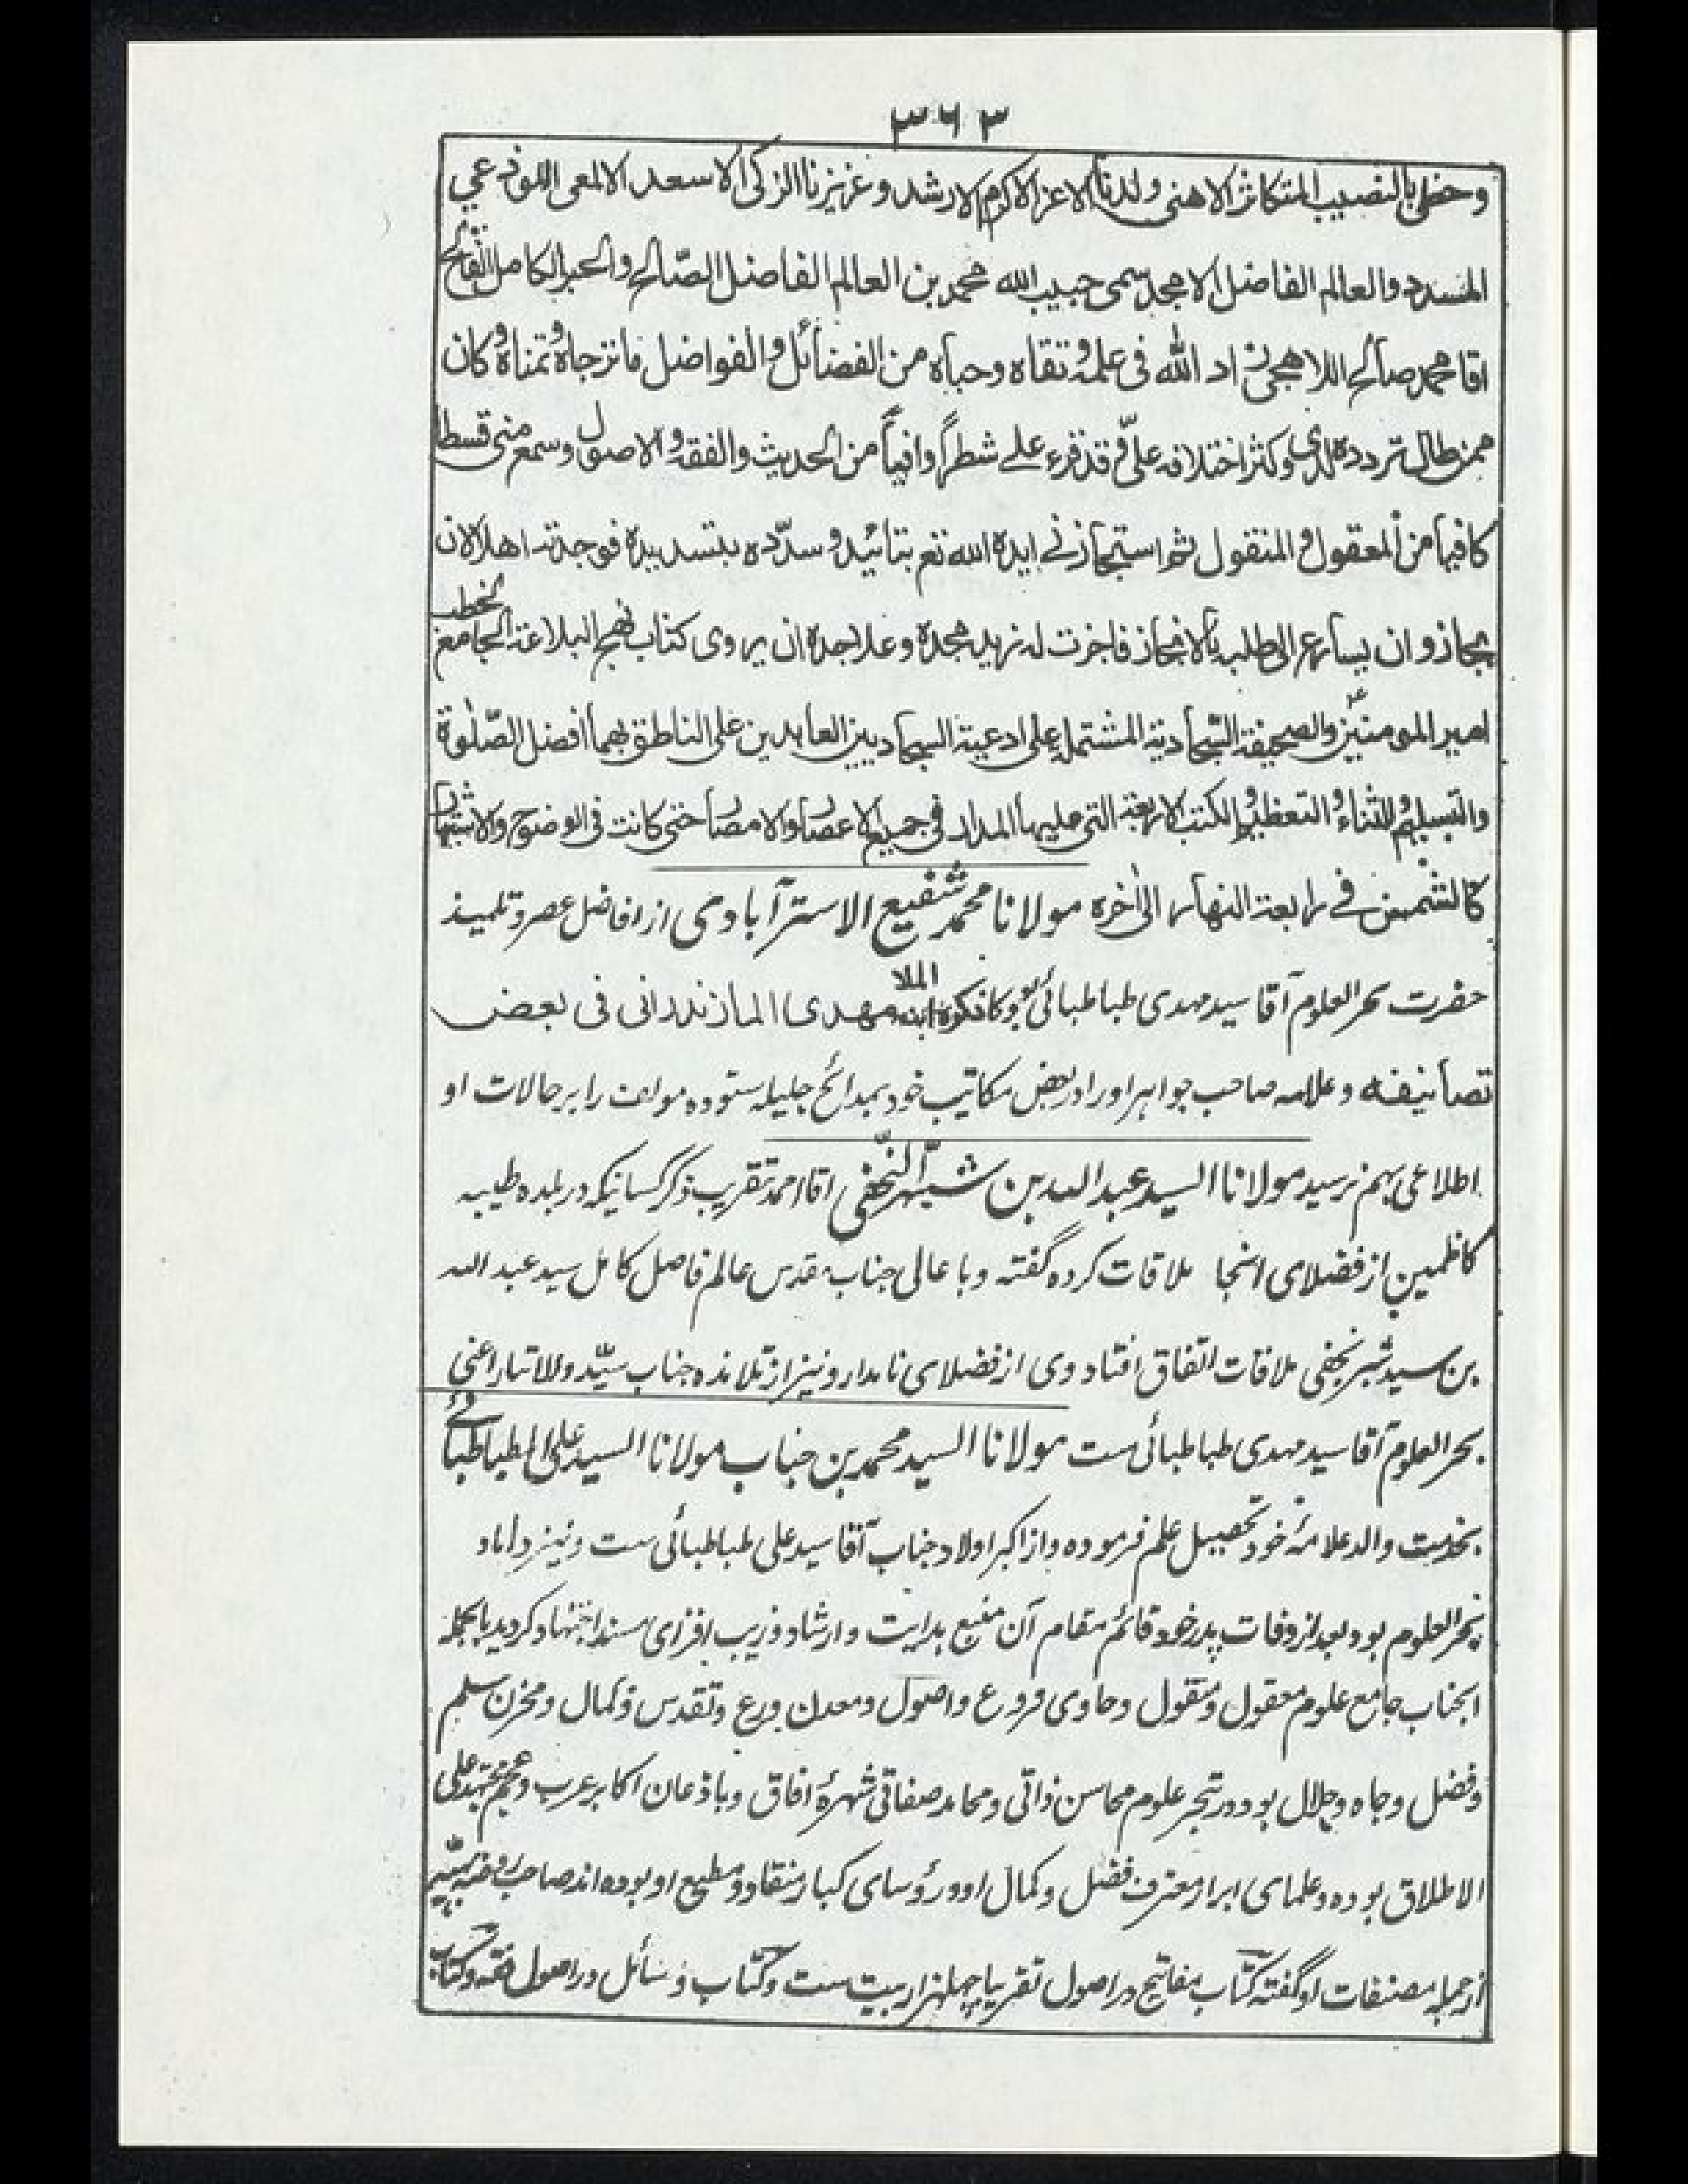 ٣٦٣
و حظی بالنصیب المتکاثر الاهنی ولدنا الاعز الاکرم الارشد و عزیزنا الزکی الاسعد الالمعی اللوذعی
المسدد و العالم الفاضل الامجد سمی حبیب الله محمد بن العالم الفاضل الصّالح و الحبر الکامل الفالح
اقا محمد صالح اللاهجی زاد الله فی علمه و تقاه و حباه من الفضائل و الفواضل ما ترجاه و تمناه و کان
ممن طال تردده لدی و کثر اختلافه علیّ و قد قرء علے شطراً وافیاً من الحدیث و الفقه و الاصول و سمع منی قسطا
کافیا من المعقول و المنقول ثم استجازنے ایده الله تع بتائیده و سدّده بتسدیده فوجدته اهلا لان
یجاز و ان یسارع الی طلبه بالانجاز فاجزت له زید مجده و علا جده ان یروی کتاب نهج البلاغة الجامع لخطب
امیر المومنین ع و الصحیفة السّجادیة المشتملة علی ادعیة السجاد زین العابدین علی الناطق بهما افضل الصّلوٰة
و التسلیم و الثناء و التعظیم و الکتب الاربعة التی علیها المدار فی جمیع الاعصار و الامصار حتی کانت فی الوضوح و الاشتهار
کالشمس فے رابعة النهار الی اٰخره مولانا محمد شفیع الاسترآبادی از افاضل عصر و تلمیذ
حضرت بحر العلوم آقا سید مهدی طباطبائی بود کما ذکره ابن الملا مهدی المازندرانی فی بعض
تصانیفه و علامه صاحب جواهر او را در بعض مکاتیب خود بمدائح جلیله ستوده مولف را بر حالات او
اطلاعی بهم نرسید مولانا السید عبد الله بن شبّر النّجفی اقا احمد بتقریب ذکر کسانیکه در بلده طیبه
کاظمین از فضلای انجا ملاقات کرده گفته و با عالی جناب مقدس عالم فاضل کامل سید عبد الله
بن سید شبر نجفی ملاقات اتفاق افتاد وی از فضلای نامدار و نیز از تلامذه جناب سیّد والا تبار اعنی
بحر العلوم آقا سید مهدی طباطبائی ست مولانا السید محمد بن جناب مولانا السید علی الطباطبائے
بخدمت والد علامهٔ خود تحصیل علم فرموده و از اکبر اولاد جناب آقا سید علی طباطبائی ست و نیز داماد
بحر العلوم بود و بعد از وفات پدر خود قائم مقام آن منبع هدایت و ارشاد و زیب افزای مسند اجتهاد گردید بالجمله
انجناب جامع علوم معقول و منقول و حاوی فروع و اصول و معدن ورع و تقدس و کمال و مخزن سلم
و فضل و جاه و جلال بود و در تبحر علوم محاسن ذاتی و محامد صفاتی شهرهٔ افاق و باذعان اکابر عرب و عجم مجتهد علی
الاطلاق بوده و علمای ابرار معترف فضل و کمال او و رؤسای کبار منقاد و مطیع او بوده اند صاحب روضه بهیه
از جمله مصنفات او گفته کتاب مفاتیح در اصول تقریبا چهلهزار بیت ست و کتاب وسائل در اصول فقه و کتاب